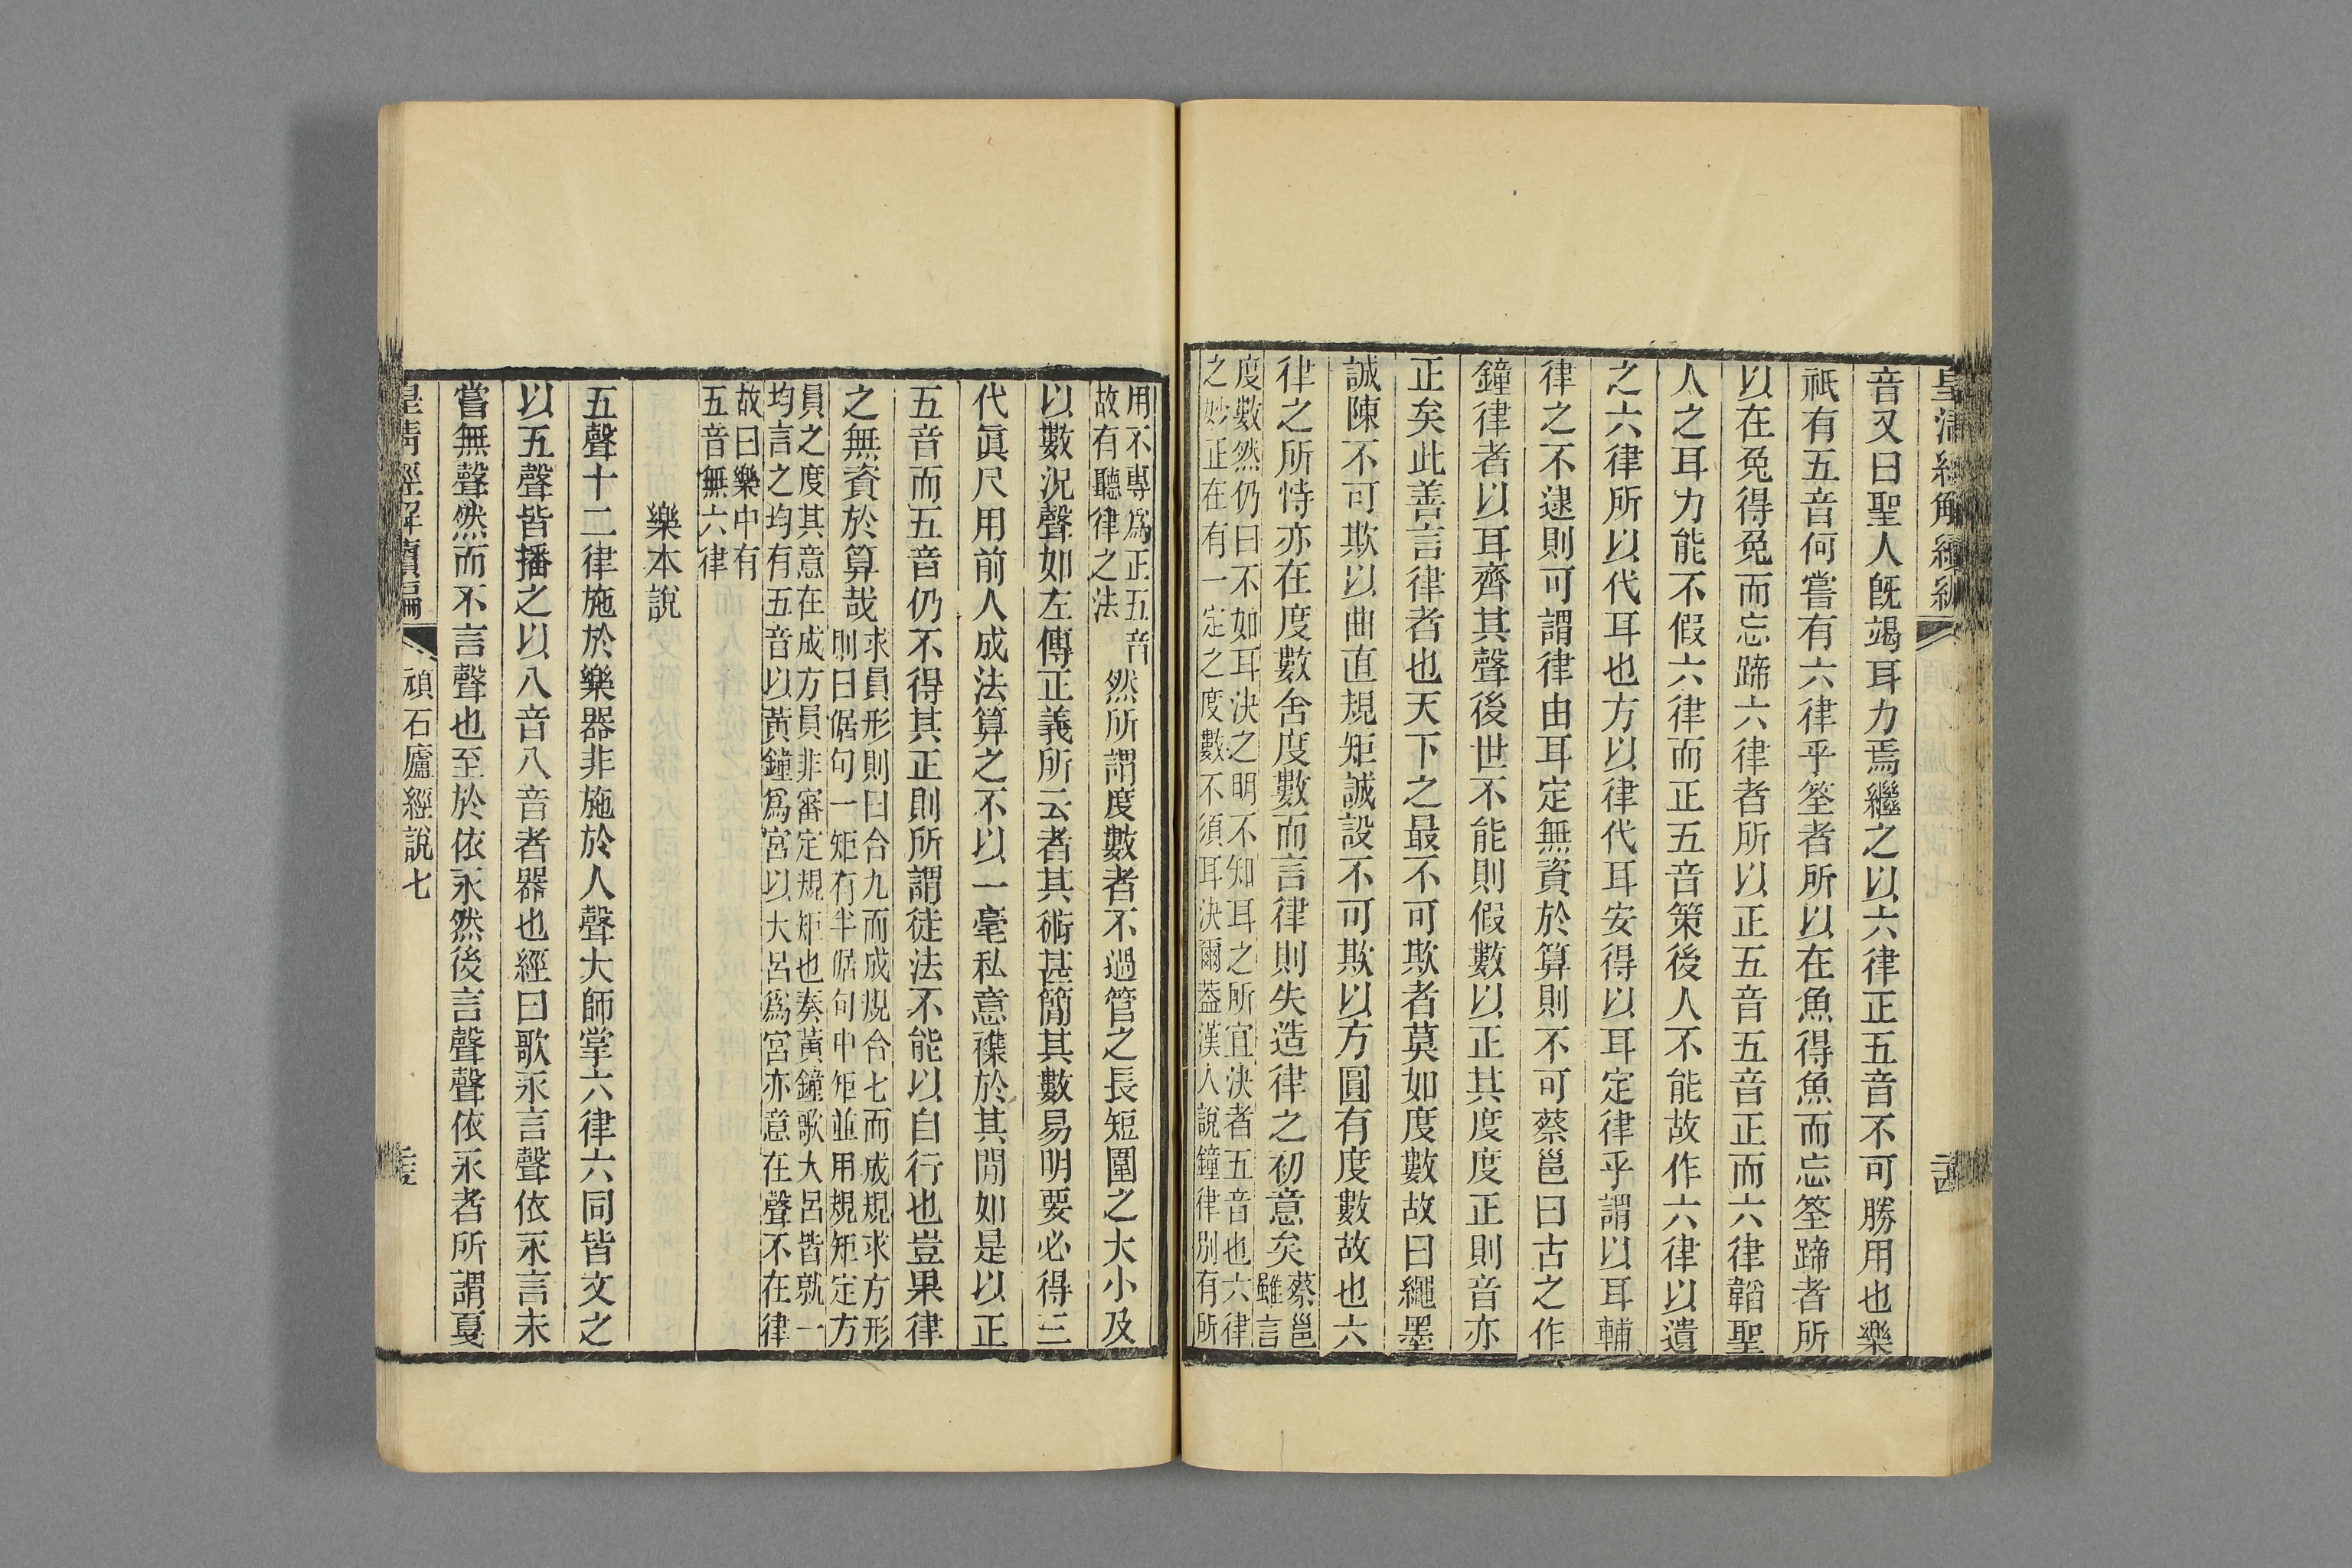 皇清經解續編
音又曰聖人旣竭耳力焉繼之以六律正五音不可勝用也樂
祇有五音何嘗有六律乎筌者所以在魚得魚而忘筌蹄者所
以在兔得兔而忘蹄六律者所以正五音五音正而六律韜聖
人之耳力能不假六律而正五音策後人不能故作六律以遺
之六律所以代耳也方以律代耳安得以耳定律乎謂以耳輔
律之不逮則可謂律由耳定無資於算則不可蔡邕曰古之作
鐘律者以耳齊其聲後世不能則假數以正其度度正則音亦
正矣此善言律者也天下之最不可欺者莫如度數故曰繩墨
誠陳不可欺以曲直規矩誠設不可欺以方圓有度數故也六
律之所恃亦在度數舍度數而言律則失造律之初意矣蔡邕
雖言
度數然仍曰不如耳決之明不知耳之所宜決者五音也六律
之妙正在有一定之度數不須耳決爾葢漢人說鐘律別有所
用不專爲正五音
故有聽律之法
然所謂度數者不過管之長短圍之大小及
以數況聲如左傳正義所云者其術甚簡其數易明要必得三
代眞尺用前人成法算之不以一毫私意襍於其閒如是以正
五音而五音仍不得其正則所謂徒法不能以自行也豈果律
之無資於算哉求員形則曰合九而成規合七而成規求方形
則曰倨句一矩有半倨句中矩並用規矩定方
員之度其意在成方員非審定規矩也奏黃鐘歌大呂皆就一
均言之均有五音以黃鐘爲宮以大呂爲宮亦意在聲不在律
故曰樂中有
五音無六律
樂本說
五聲十二律施於樂器非施於人聲大師掌六律六同皆文之
以五聲皆播之以八音八音者器也經曰歌永言聲依永言未
嘗無聲然而不言聲也至於依永然後言聲聲依永者所謂戛
皇清經解續編 頑石廬經說七